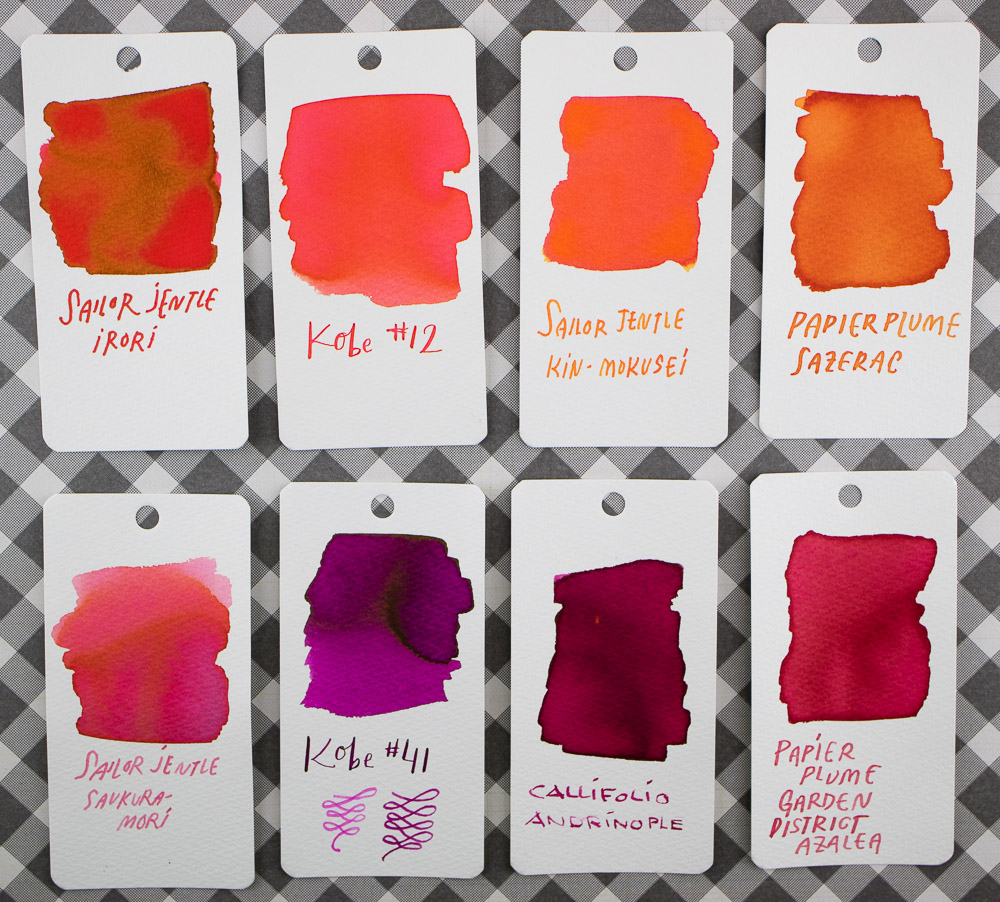 SAILOR JENTLE
IRORI
Kobe #12
SAILOR JENTLE
KIN-MOKUSEI
PAPIER PLUME
SAZERAC
SAILOR JENTLE
SAUKURA-
MORI
Kobe #41
CALLIFOLIO
ANDRINOPLE
PAPIER
PLUME
GARDEN
DISTRICT
AZALEA